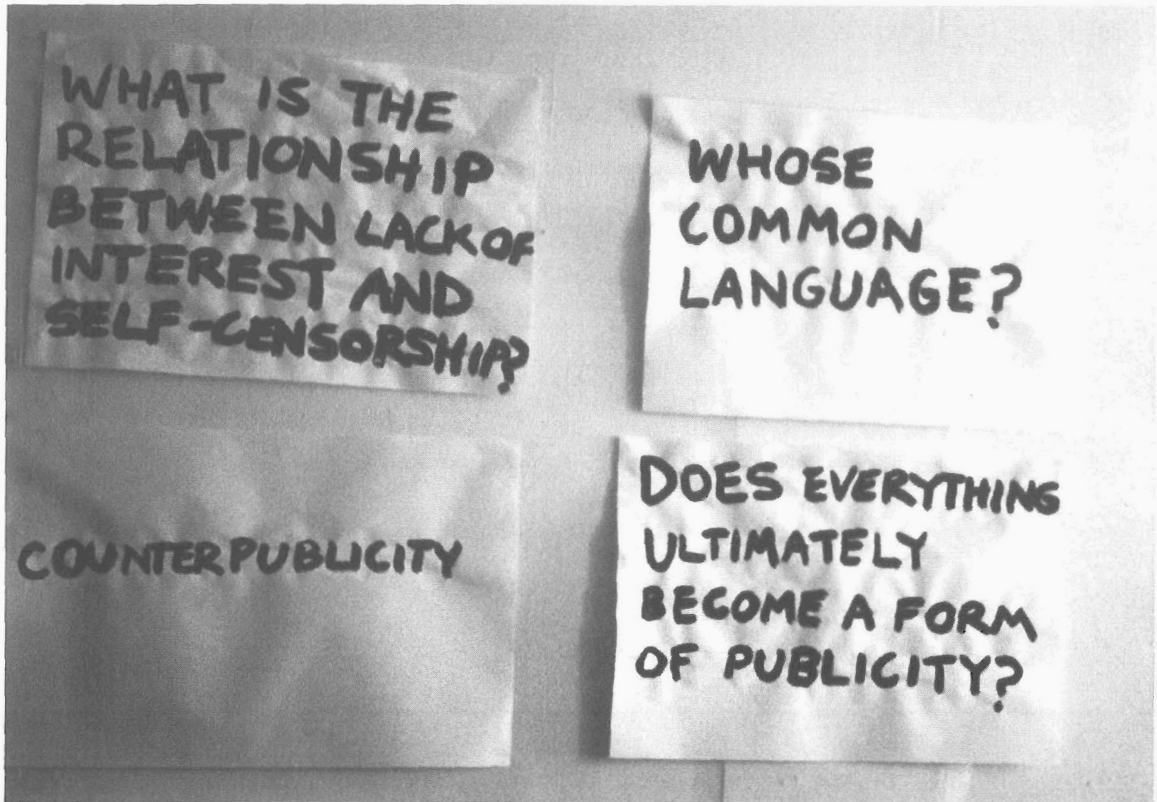 WHAT IS THE
RELATIONSHIP
BETWEEN LACK OF
INTEREST AND
SELF-CENSORSHIP?
WHOSE
COMMON
LANGUAGE?
COUNTERPUBLICITY
DOES EVERYTHING
ULTIMATELY
BECOME A FORM
OF PUBLICITY?